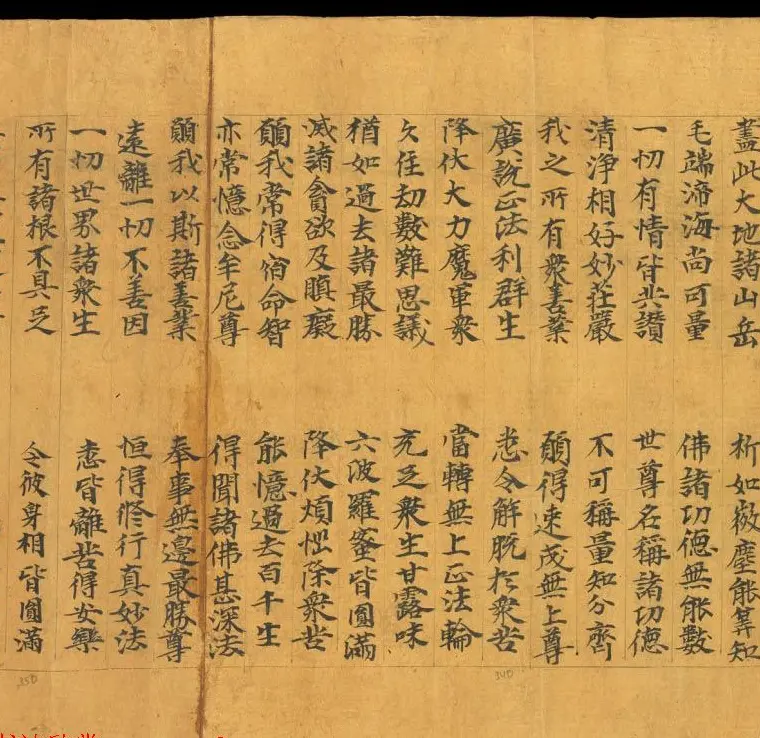 蓋此大地諸山岳 析如微塵能筭知
毛端渧海尚可量 佛諸功德無能數
一切有情皆共讚 世尊名稱諸功德
清淨相好妙莊嚴 不可稱量知分齊
我之所有衆善業 願得速成無上尊
廣說正法利群生 悉令解脫於衆苦
降伏大力魔軍衆 當轉無上正法輪
久住劫數難思議 充足衆生甘露味
猶如過去諸最勝 六波羅蜜皆圓滿
滅諸貪欲及瞋癡 降伏煩惱除衆苦
願我常得宿命智 能憶過去百千生
亦常憶念牟尼尊 得聞諸佛甚深法
願我以斯諸善業 奉事無邊最勝尊
遠離一切不善因 恒得修行真妙法
一切世界諸衆生 悉皆離苦得安樂
所有諸根不具足 令彼身相皆圓滿
340
350